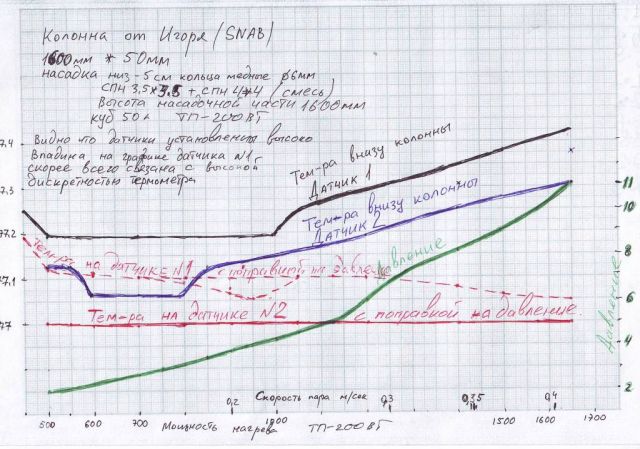 Колонна от Игоря (SNAB)
1600мм * 50мм
насадка низ - 5 см кольца медные ф6мм
СПН 3.5*3.5 + СПН 4*4 (смесь)
Высота насадочной части 1600мм
куб 50л ТП-200ВТ
Видно что датчики установлены высоко
Впадина на графике датчика N1,
скорее всего связана с высокой
дискретностью термометра
Тем-ра внизу колонны
Датчик 1
Тем-ра внизу колонны
Датчик 2
Тем-ра на датчике N1 с поправкой на давлен
Давление
Тем-ра на датчике N2 с поправкой на давление.
7.4
7.3
77.2
77.1
77
11
8
6
5
4
2
Давление
0,2 Скорость пара м/сек 0,3 0,35 0,4
500 600 700 1500 1600 1700
Мощность нагрева ТП-200ВТ